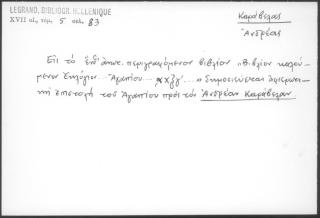 LEGRAND, BIBLIOGR. HELLENIQUE
XVII αἰ, τόμ, 5 σελ. 83
Καράβελας
Ἀνδρέας
Εἰς τὸ ἐπ' ἀριθ. περιγραφόμενον βιβλίον "Βιβλίον καλού-
μενον Ἐκλόγιον... Ἀγαπίου... ͵αχξγ'... " δημοσιεύεται ἀφιερωτι-
κὴ ἐπιστολὴ τοῦ Ἀγαπίου πρὸς τὸν Ἀνδρέαν Καράβελαν